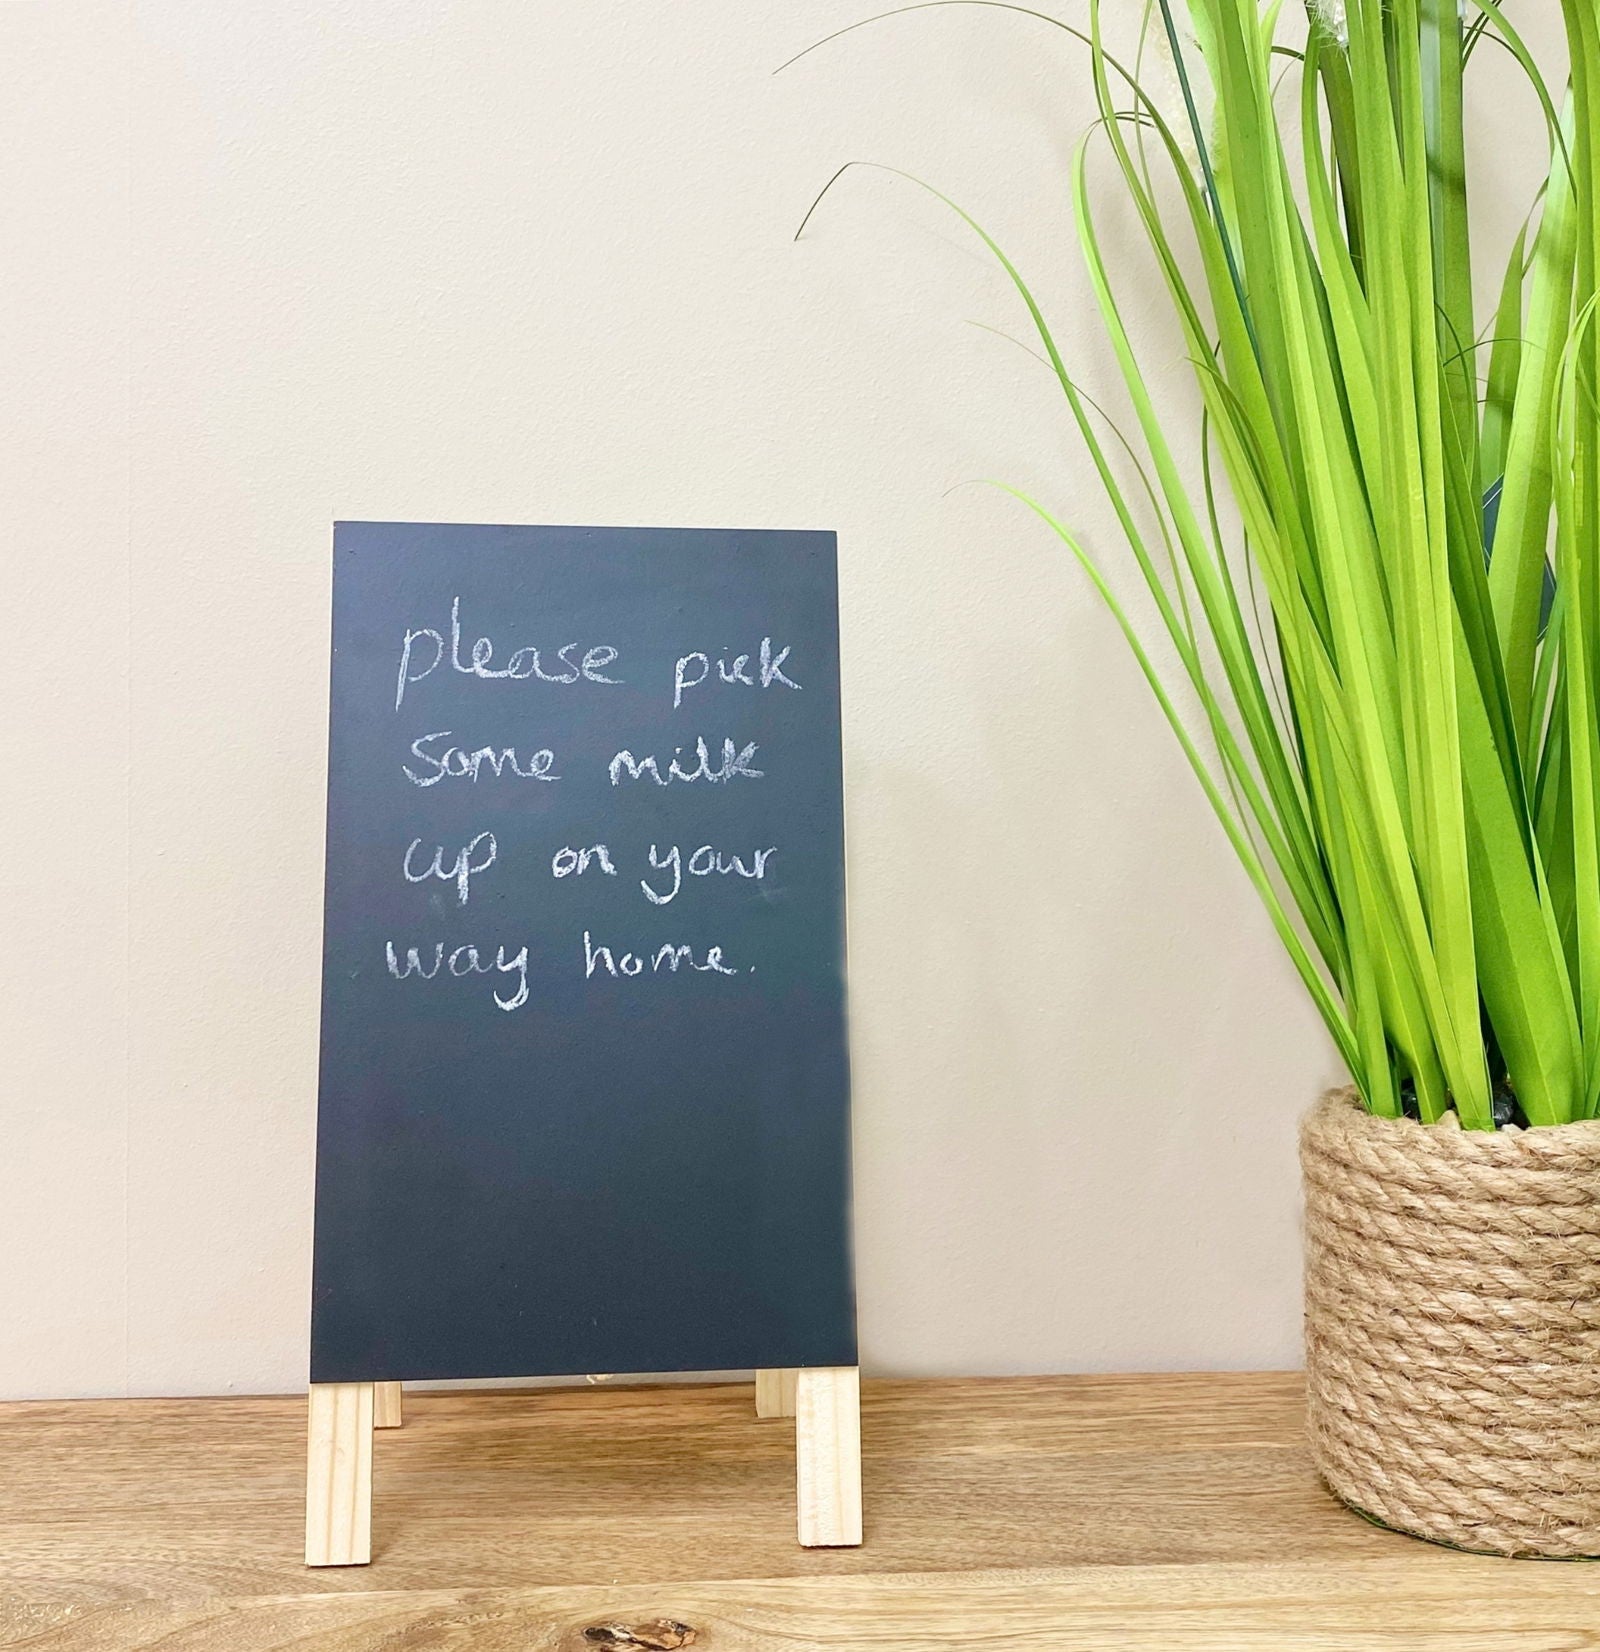 please pick
some milk
up on your
way home.